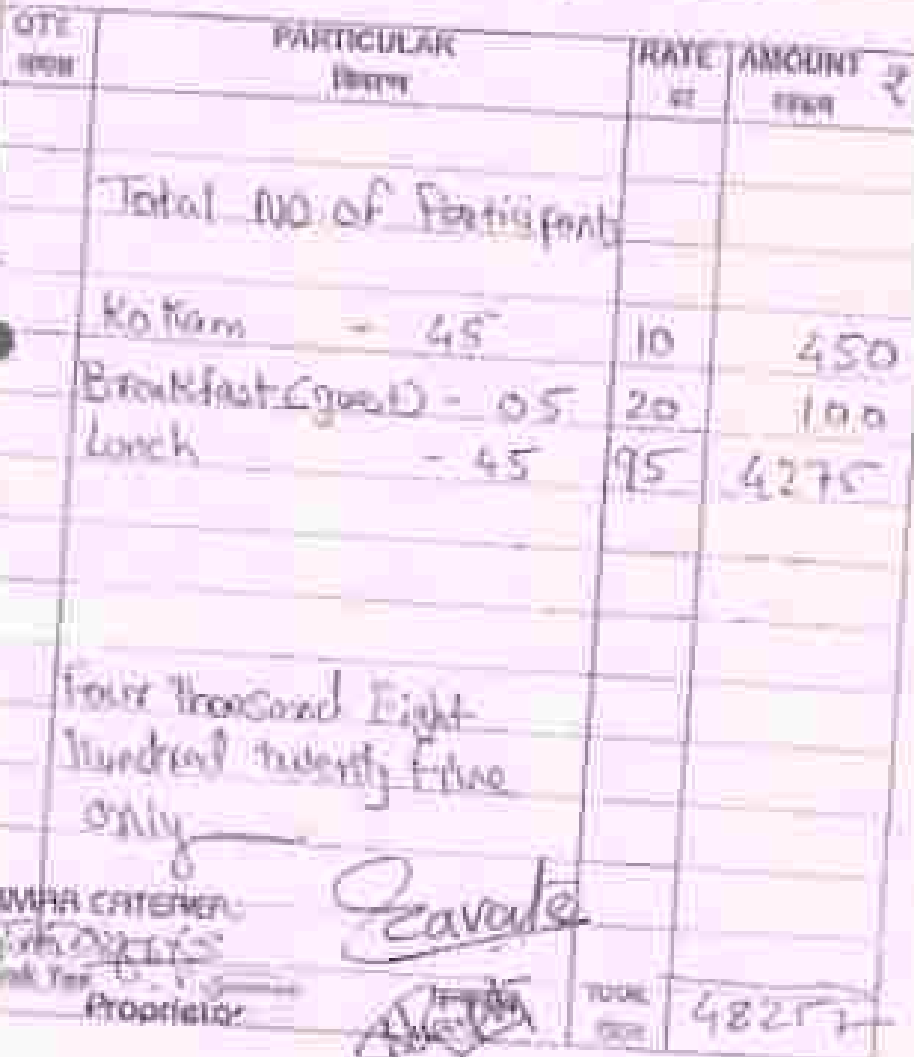 QTE PARTICULAR RATE AMOUNT ₹
विवरण दर रक्कम
Total No. of Participants
Kokam - 45 10 450
Breakfast (guest) - 05 20 100
Lunch - 45 95 4275
Four thousand Eight
Hundred twenty Five
only
CATERER
Proprietor
TOTAL 4825/-